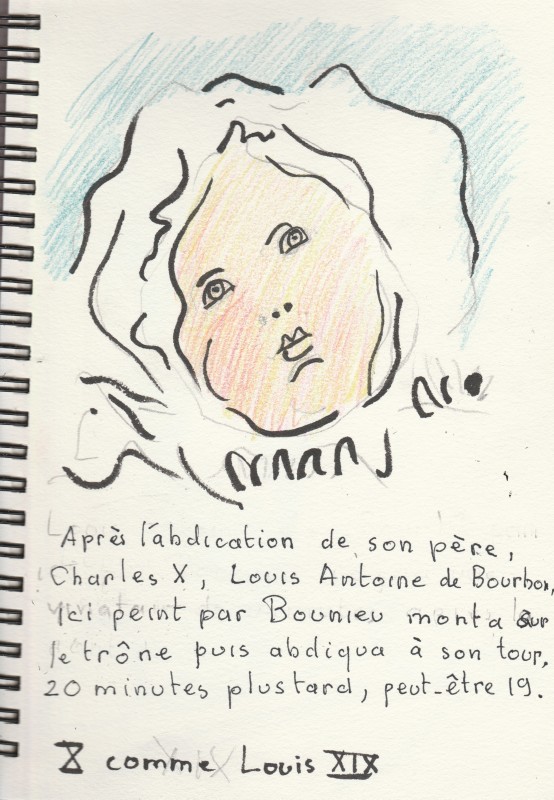 Après l'abdication de son père,
Charles X, Louis Antoine de Bourbon,
Ici peint par Bounieu monta sur
le trône puis abdiqua à son tour,
20 minutes plustard, peut-être 19.
X comme Louis XIX